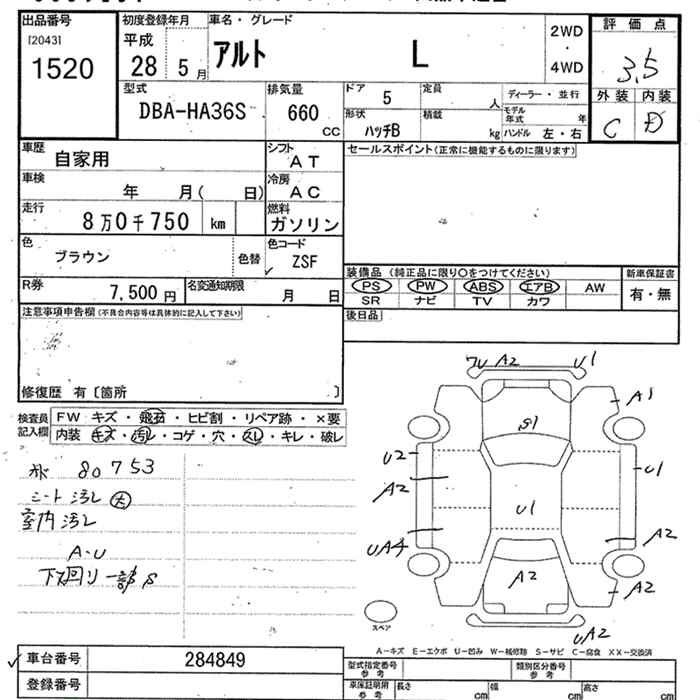 出品番号 初度登録年月 車名・グレード 2WD 評価点
[2043] 平成 アルト L ・
1520 28 5月 4WD 3.5
型式 排気量 ドア 5 定員 人 ディーラー・並行 外装 内装
DBA-HA36S 660 cc 形状 ハッチB 積載 kg モデル年式 年 C D
ハンドル 左・右
車歴 自家用 シフト AT セールスポイント(正常に機能するものに限ります)
車検 年 月( 日) 冷房 AC
走行 8万0千750 km 燃料 ガソリン
色 ブラウン 色替 色コード ZSF
装備品 (純正品に限り○をつけてください) 新車保証書
R券 7,500円 名変通知期限 月 日 PS PW ABS エアB AW 有・無
SR ナビ TV カワ
注意事項申告欄(不具合内容等は具体的に記入して下さい) 後日品
修復歴 有〔箇所 〕
検査員記入欄 FW キズ・飛石・ヒビ割・リペア跡・×要
内装 キズ・汚レ・コゲ・穴・スレ・キレ・破レ
80753
シート汚レ 大
室内汚レ
A・U
下廻り一部S
A2 U1
A1
S1
U2 U1
A2
U1
UA4 A2
A2 A2
スペア UA2
A-キズ E-エクボ U-凹み W-補修跡 S-サビ C-腐食 XX-交換済
車台番号 284849 型式指定番号 参考 類別区分番号 参考
登録番号 車庫証明用 参考 長さ cm 幅 cm 高さ cm